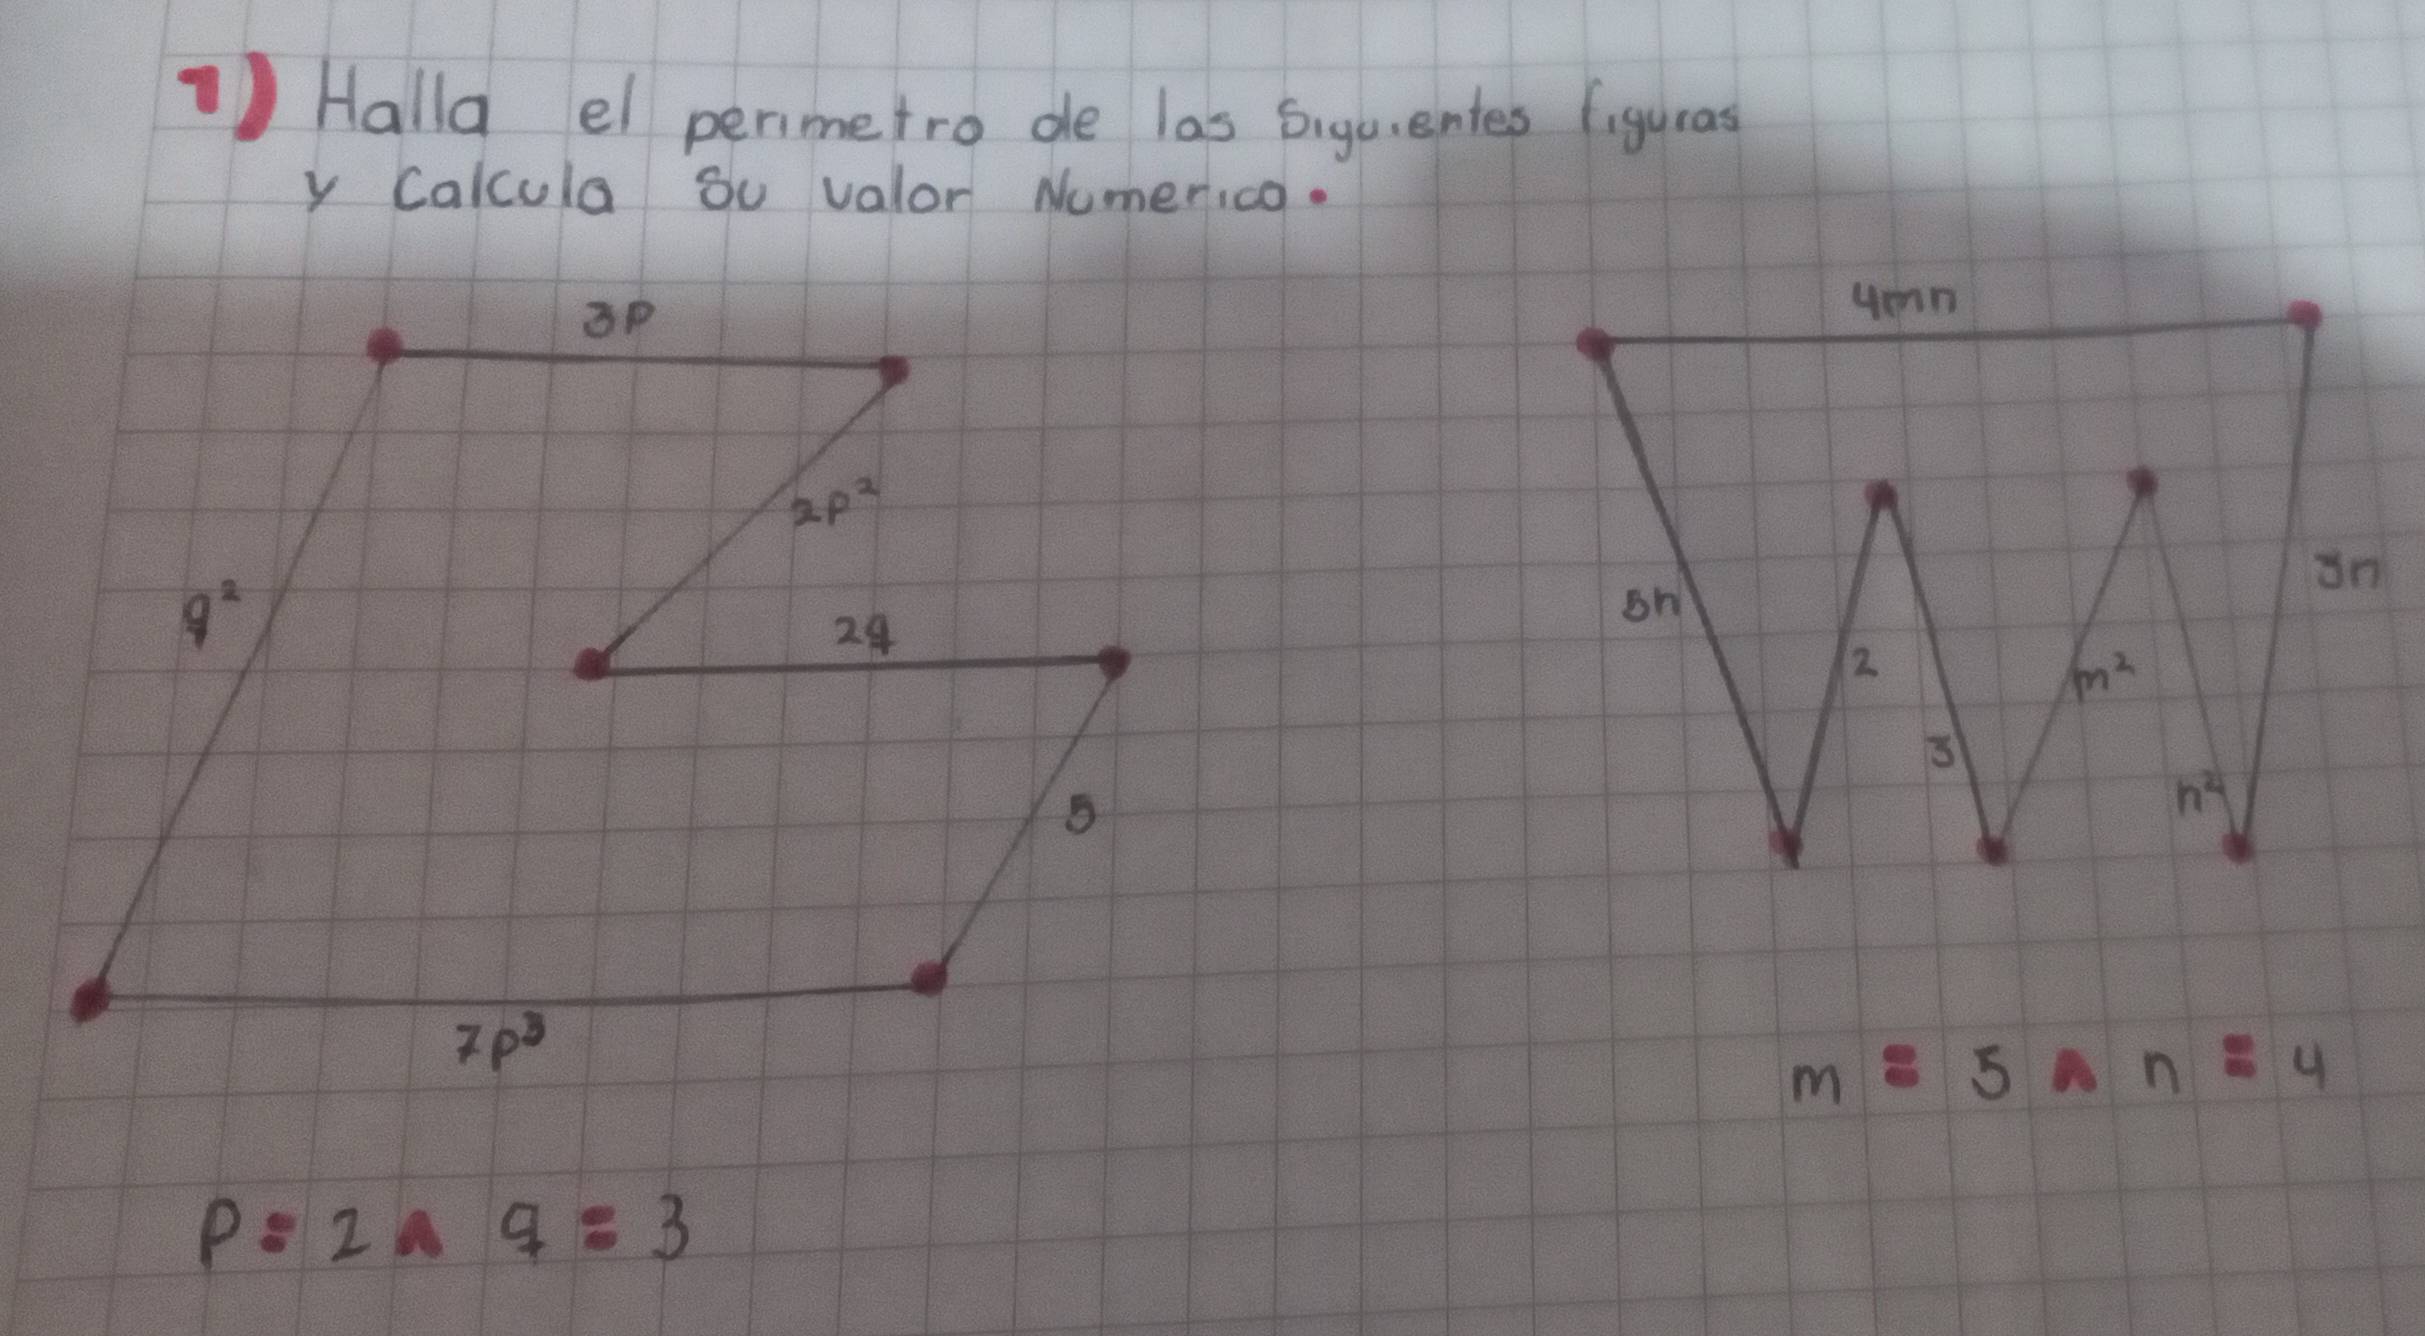 1) Halla el perimetro de las Siguientes figuras
y Calcula Su valor Numerico.
3p
2p²
q²
2q
5
7p³
p = 2 ∧ q = 3
4mn
5n
2
3
m²
n²
3n
m = 5 ∧ n = 4